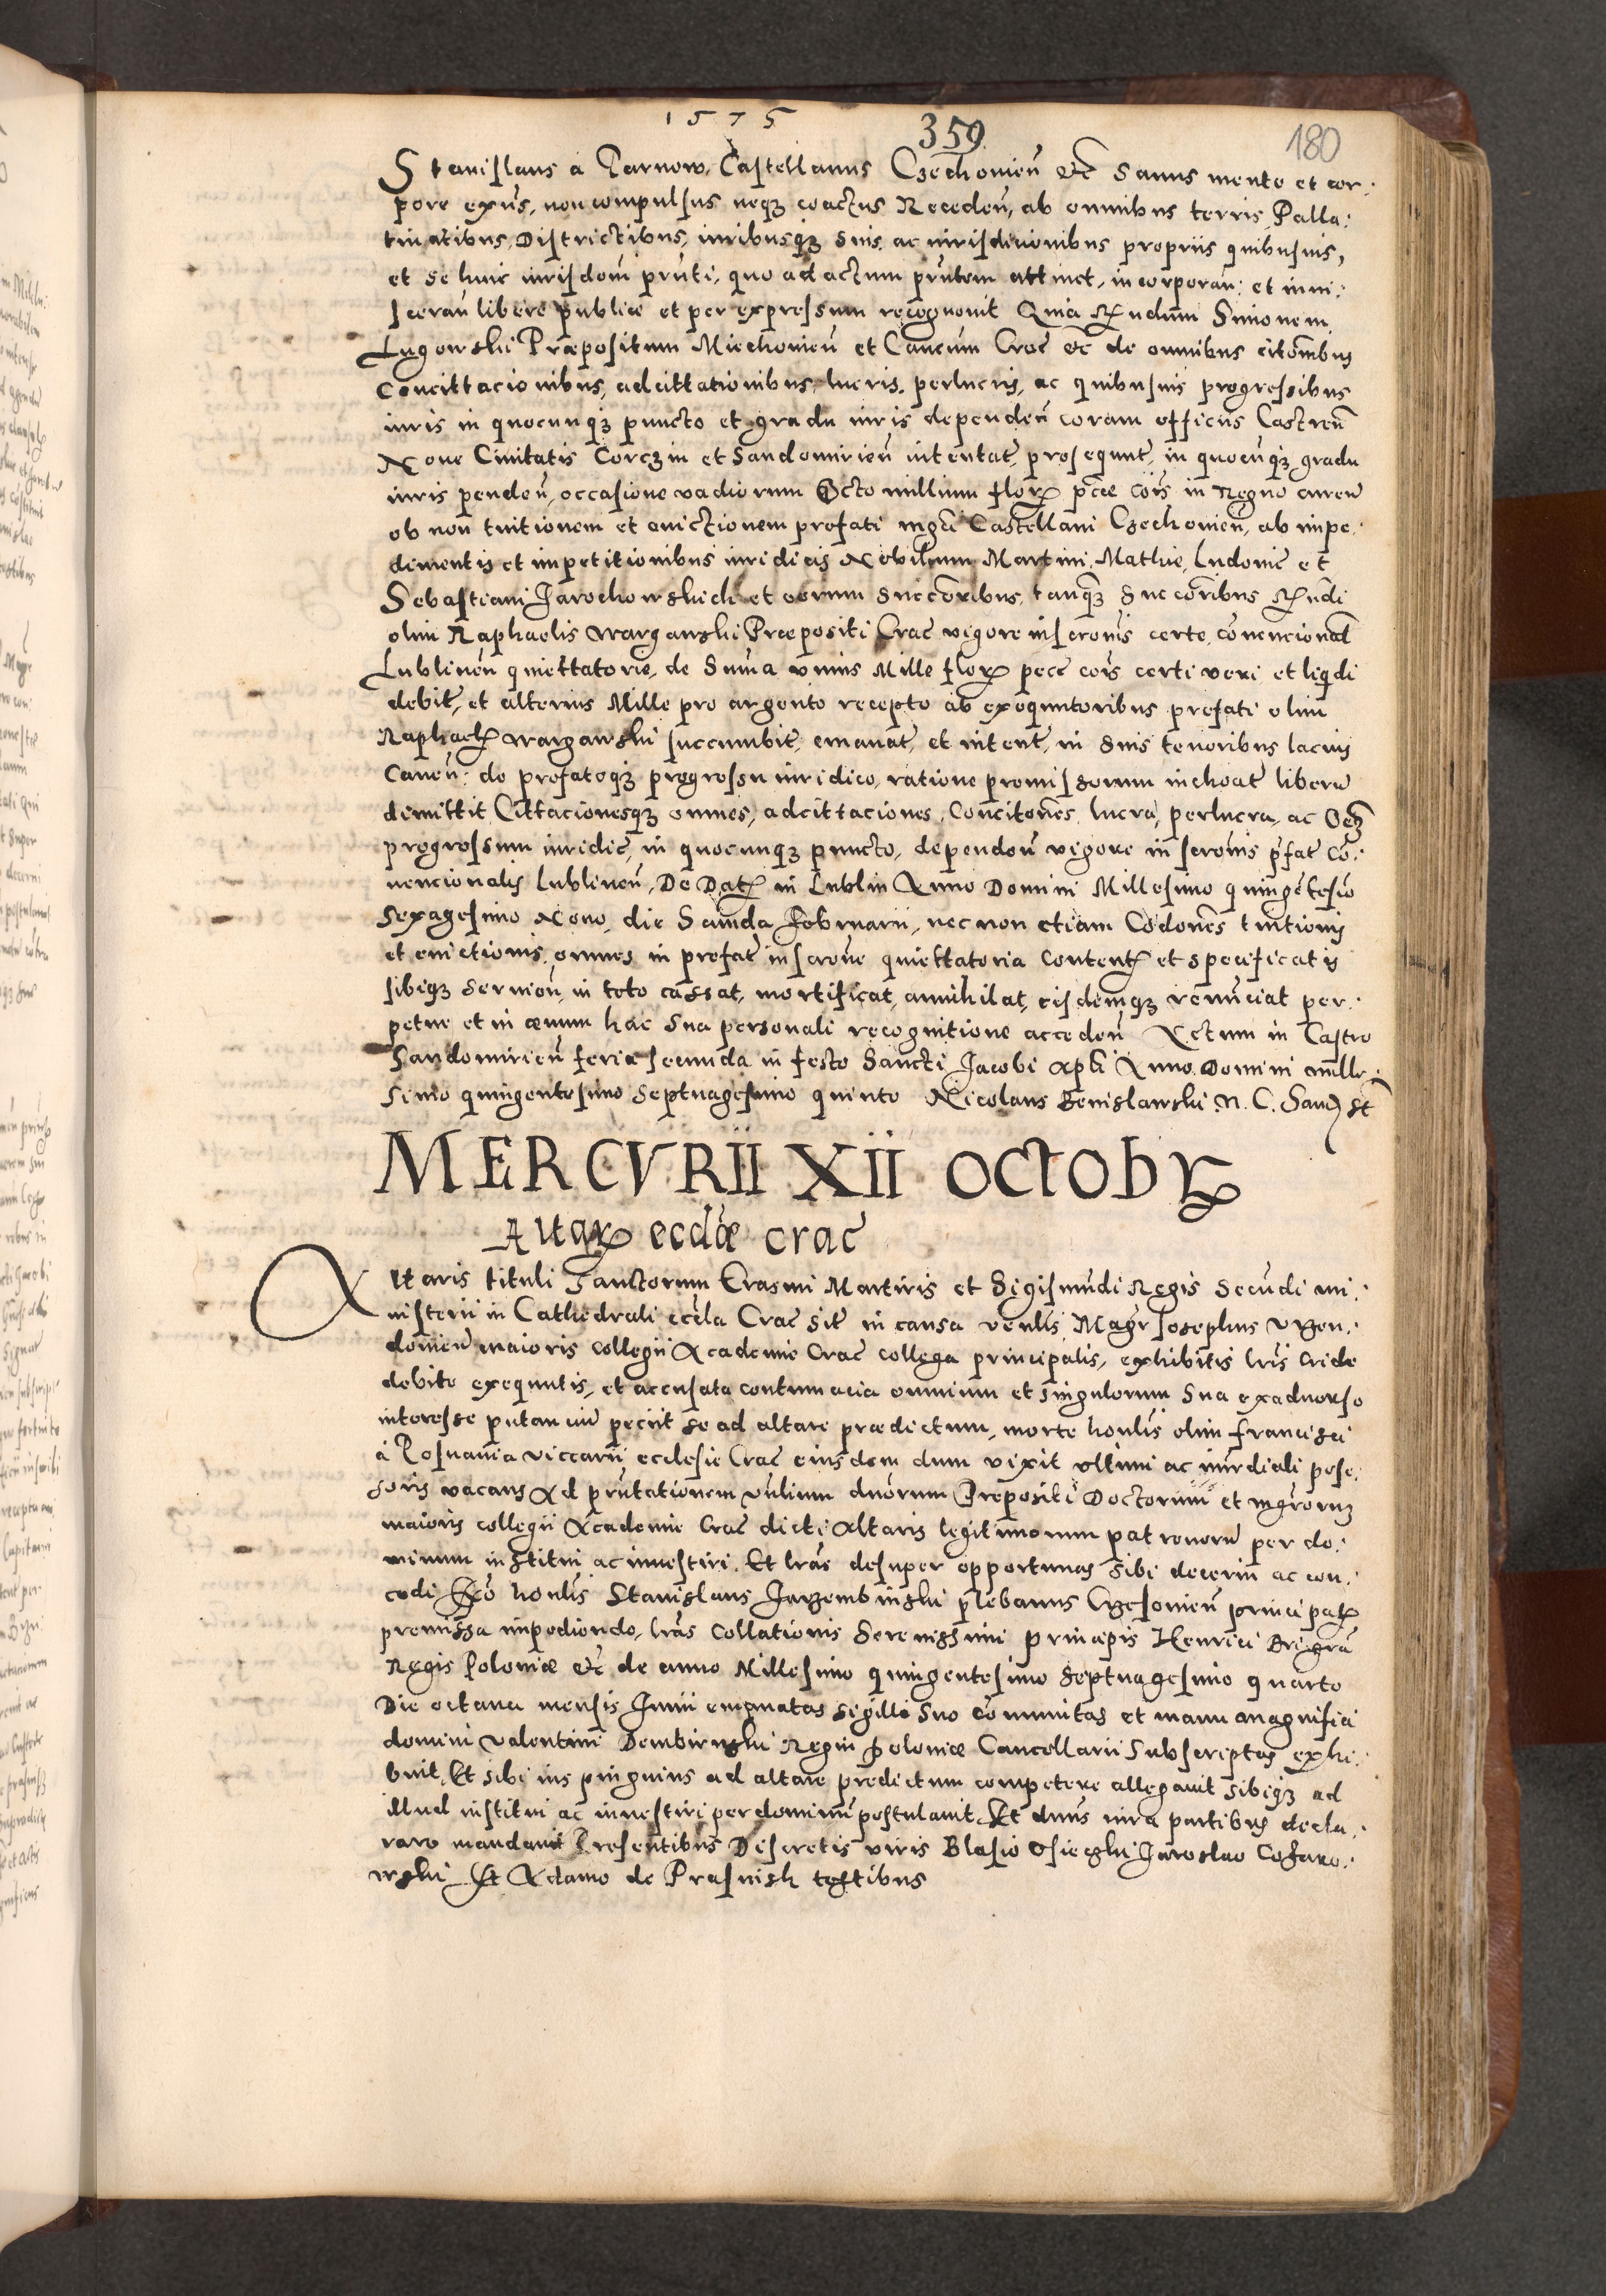 1575
359
180
Stanislaus a Tarnow, Castellanus Czechovien̄ etc̄ Sanus mente et cor:
pore exn̄s, non compulsus neqʒ coactus Receden̄, ab omnibus terris, Palla:
tinatibus, Districtibus, iuribusqʒ suis, ac iurisdicionibus propriis quibusuis,
et se huic iurisdoni pn̄ti, quo ad actum pn̄tem attinet, incorporan̄: et inui:
sceran̄ libere publice et per expressum recognouit Quia Rn̄dum Simonem
Lugowski Præpositum Miechouien̄ et Cancum Crac̄ etc̄ de omnibus citonibus
Concittacionibus, adcittationibus, lucris, perlucris, ac quibusuis progressibus
iuris in quocunqʒ puncto et gradu iuris dependen̄ coram officiis Castren̄
Noue Ciuitatis Corczin et Sandomirien̄ intentat, prosequut, in quocunqʒ gradu
iuris penden̄, occasione vadiorum Octo millium flor pcce cois in Regno curen̄
ob non tuitionem et euictionem prefati mgci Castellani Czechouien̄, ab impe:
dimentis et impetitionibus iuridicis Nobilium Martini, Mathie, Ludouic et
Sebastiani Jarochowskich et eorum succoribus, tanqʒ succoribus Rn̄di
olim Raphaelis Wargawski Præpositi Crac̄ vigore inscronis certe, conuencional
Lublinen̄ quiettatorie, de Sum̄a vnius Mille flor pecc cois certi veri et liqdi
debit, et alterius Mille pro argento recepto ab exequutoribus prefati olim
Raphael Wargawski succumbit, emanat, et intent, in suis tenoribus lacius
Canen̄: de prefatoqʒ progressu iuridico, ratione premissorum inchoat liberu
dimittit Cittacionesqʒ omnes, adcittaciones, Concitones, lucra, perlucra, ac Oem
progressum iuridic, in quocunqʒ puncto, dependen̄ vigore inscronis pfat Co:
uencionalis Lublinen̄, De Dat in Lublin Anno Domini Millesimo quingētesīo
sexagesimo Nono, die Secunda Februarii, nec non etiam Codones tuitionis
et euictionis, omnes in prefat inscrone quiettatoria Content et specificatis
sibiqʒ seruien̄, in toto cassat, mortificat, annihilat, eisdemqʒ renunciat per:
petue et in æuum hac sua personali recognitione acceden̄ Actum in Castro
Sandomirien̄ feria secunda in festo Sancti Jacobi Apli Anno Domini mille:
simo quingentesimo Septuagesimo quinto Nicolaus Benislawski N. C. Sand st
MERCVRII XII OCTOBR
Altar ecclæ crac̄
Altaris tituli Sanctorum Erasmi Martiris et Sigismundi Regis Secūdi mi:
nisterii in Cathedrali eccla Crac̄ sit in causa venlis Magr Josephus vrzen:
douien̄ maioris collegii Academie Crac̄ collega principalis, exhibitis lris cride
debite exequutis, et accusata contumacia omnium et singulorum sua exaduerso
interesse putanciu peciit se ad altare prædictum, morte honlis olim francisci
à Posnania viccarii ecclesie Crac̄ eiusdem dum vixit vltimi ac imediati posse:
soris vacans Ad pn̄tationem vn̄lium duorum Prepositi Doctorum et mgrorum
maioris collegii Academie Crac̄ dicti Altaris legitimorum patronorū per do:
minum institui ac inuestiri. Et lras desuper opportunas sibi decerni ac con:
cedi Eco honlis Stanislaus Jarzembinski plebanus Czesouien̄ principal
premissa impediendo, lras Collationis Serenissimi principis Henrici Dei gra
Regis Poloniæ etc̄ de anno Millesimo quingentesimo septuagesimo quarto
Die octaua mensis Junii emanatas sigillo suo cōmunitas et manu magnifici
domini Valentini Dembienski Regni Poloniæ Cancellarii subscriptas exhi:
buit, Et sibi ius pinguius ad altare predictum competere allegauit sibiqʒ ad
illud institui ac inuestiri per dominum postulauit Et dn̄us iura partibus decla:
rare mandauit Presentibus Discretis viris Blasio Osieczki Jaroslao Cossano:
wski Et Adamo de Prasnish testibus